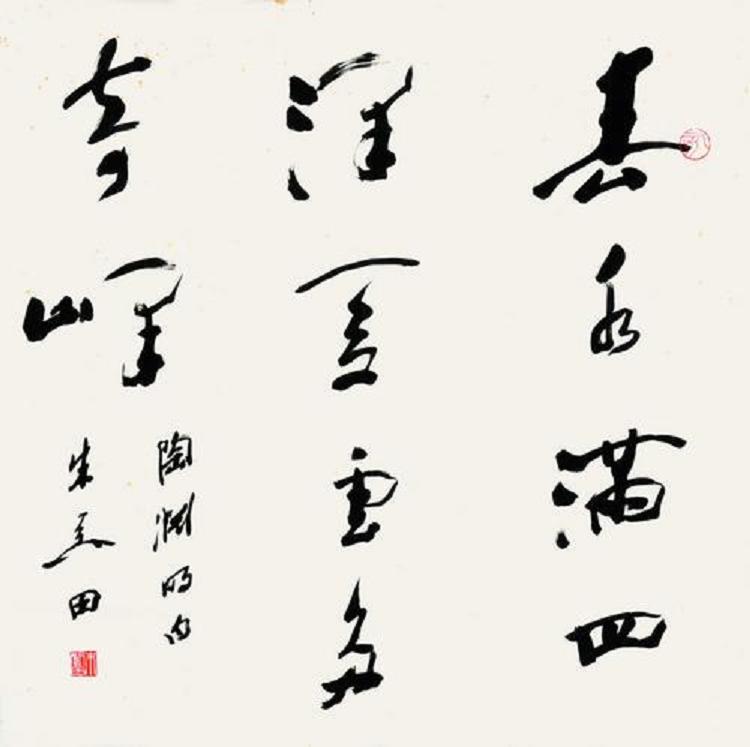 春水滿四
澤夏雲多
奇峰
陶渊明句
朱关田